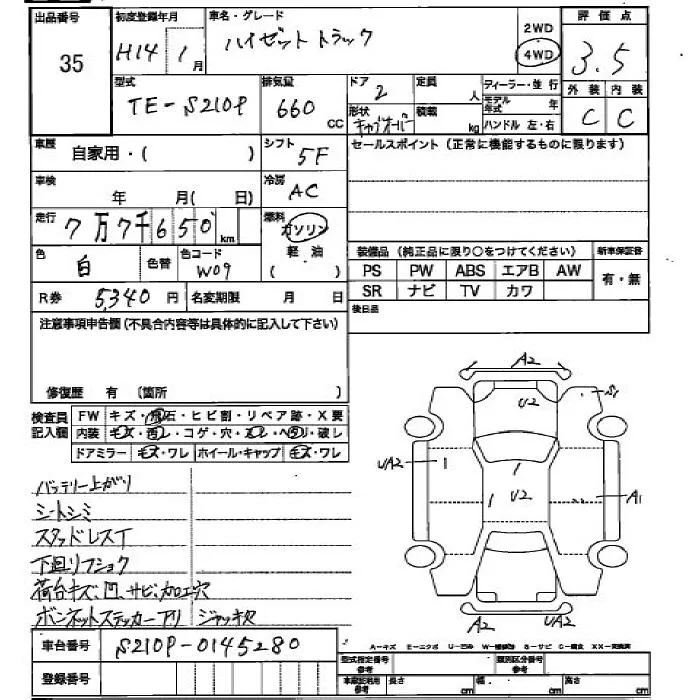 出品番号 初度登録年月 車名・グレード 2WD 4WD 評価点
35 H14 1月 ハイゼットトラック 3.5
型式 排気量 ドア 定員 ディーラー・並行 外装 内装
TE-S210P 660 CC 2 人 モデル年式 年 C C
形状 キャブオーバー 積載 kg ハンドル 左・右
車歴 自家用・( ) シフト 5F セールスポイント (正常に機能するものに限ります)
車検 年 月( 日) 冷房 AC
走行 7万7千650 km 燃料 ガソリン
色 白 色替 色コード W09 軽油 ( ) 装備品 (純正品に限り○をつけてください) 新車保証書
PS PW ABS エアB AW 有・無
R券 5,340円 名変期限 月 日 SR ナビ TV カワ
注意事項申告欄 (不具合内容等は具体的に記入して下さい) 後日品
修復歴 有 (箇所 )
検査員記入欄 FW キズ・飛石・ヒビ割・リペア跡・X要
内装 キズ・汚レ・コゲ・穴・スレ・ヘタリ・破レ
ドアミラー キズ・ワレ ホイール・キャップ キズ・ワレ
A2
U2
S1
UA2 1 1 1 U2 A1
A2 UA2
バッテリー上がり
シートシミ
スタッドレスT
下廻リフショク
荷台キズ、凹、サビ、加工穴
ボンネットステッカーアリ ジャッキ欠
車台番号 S210P-0145280
A-キズ E-エクボ U-凹み W-補修跡 S-サビ C-腐食 XX-交換済
登録番号 型式指定番号 参考 類別区分番号 参考
車検証利用 参考 長さ cm 幅 cm 高さ cm